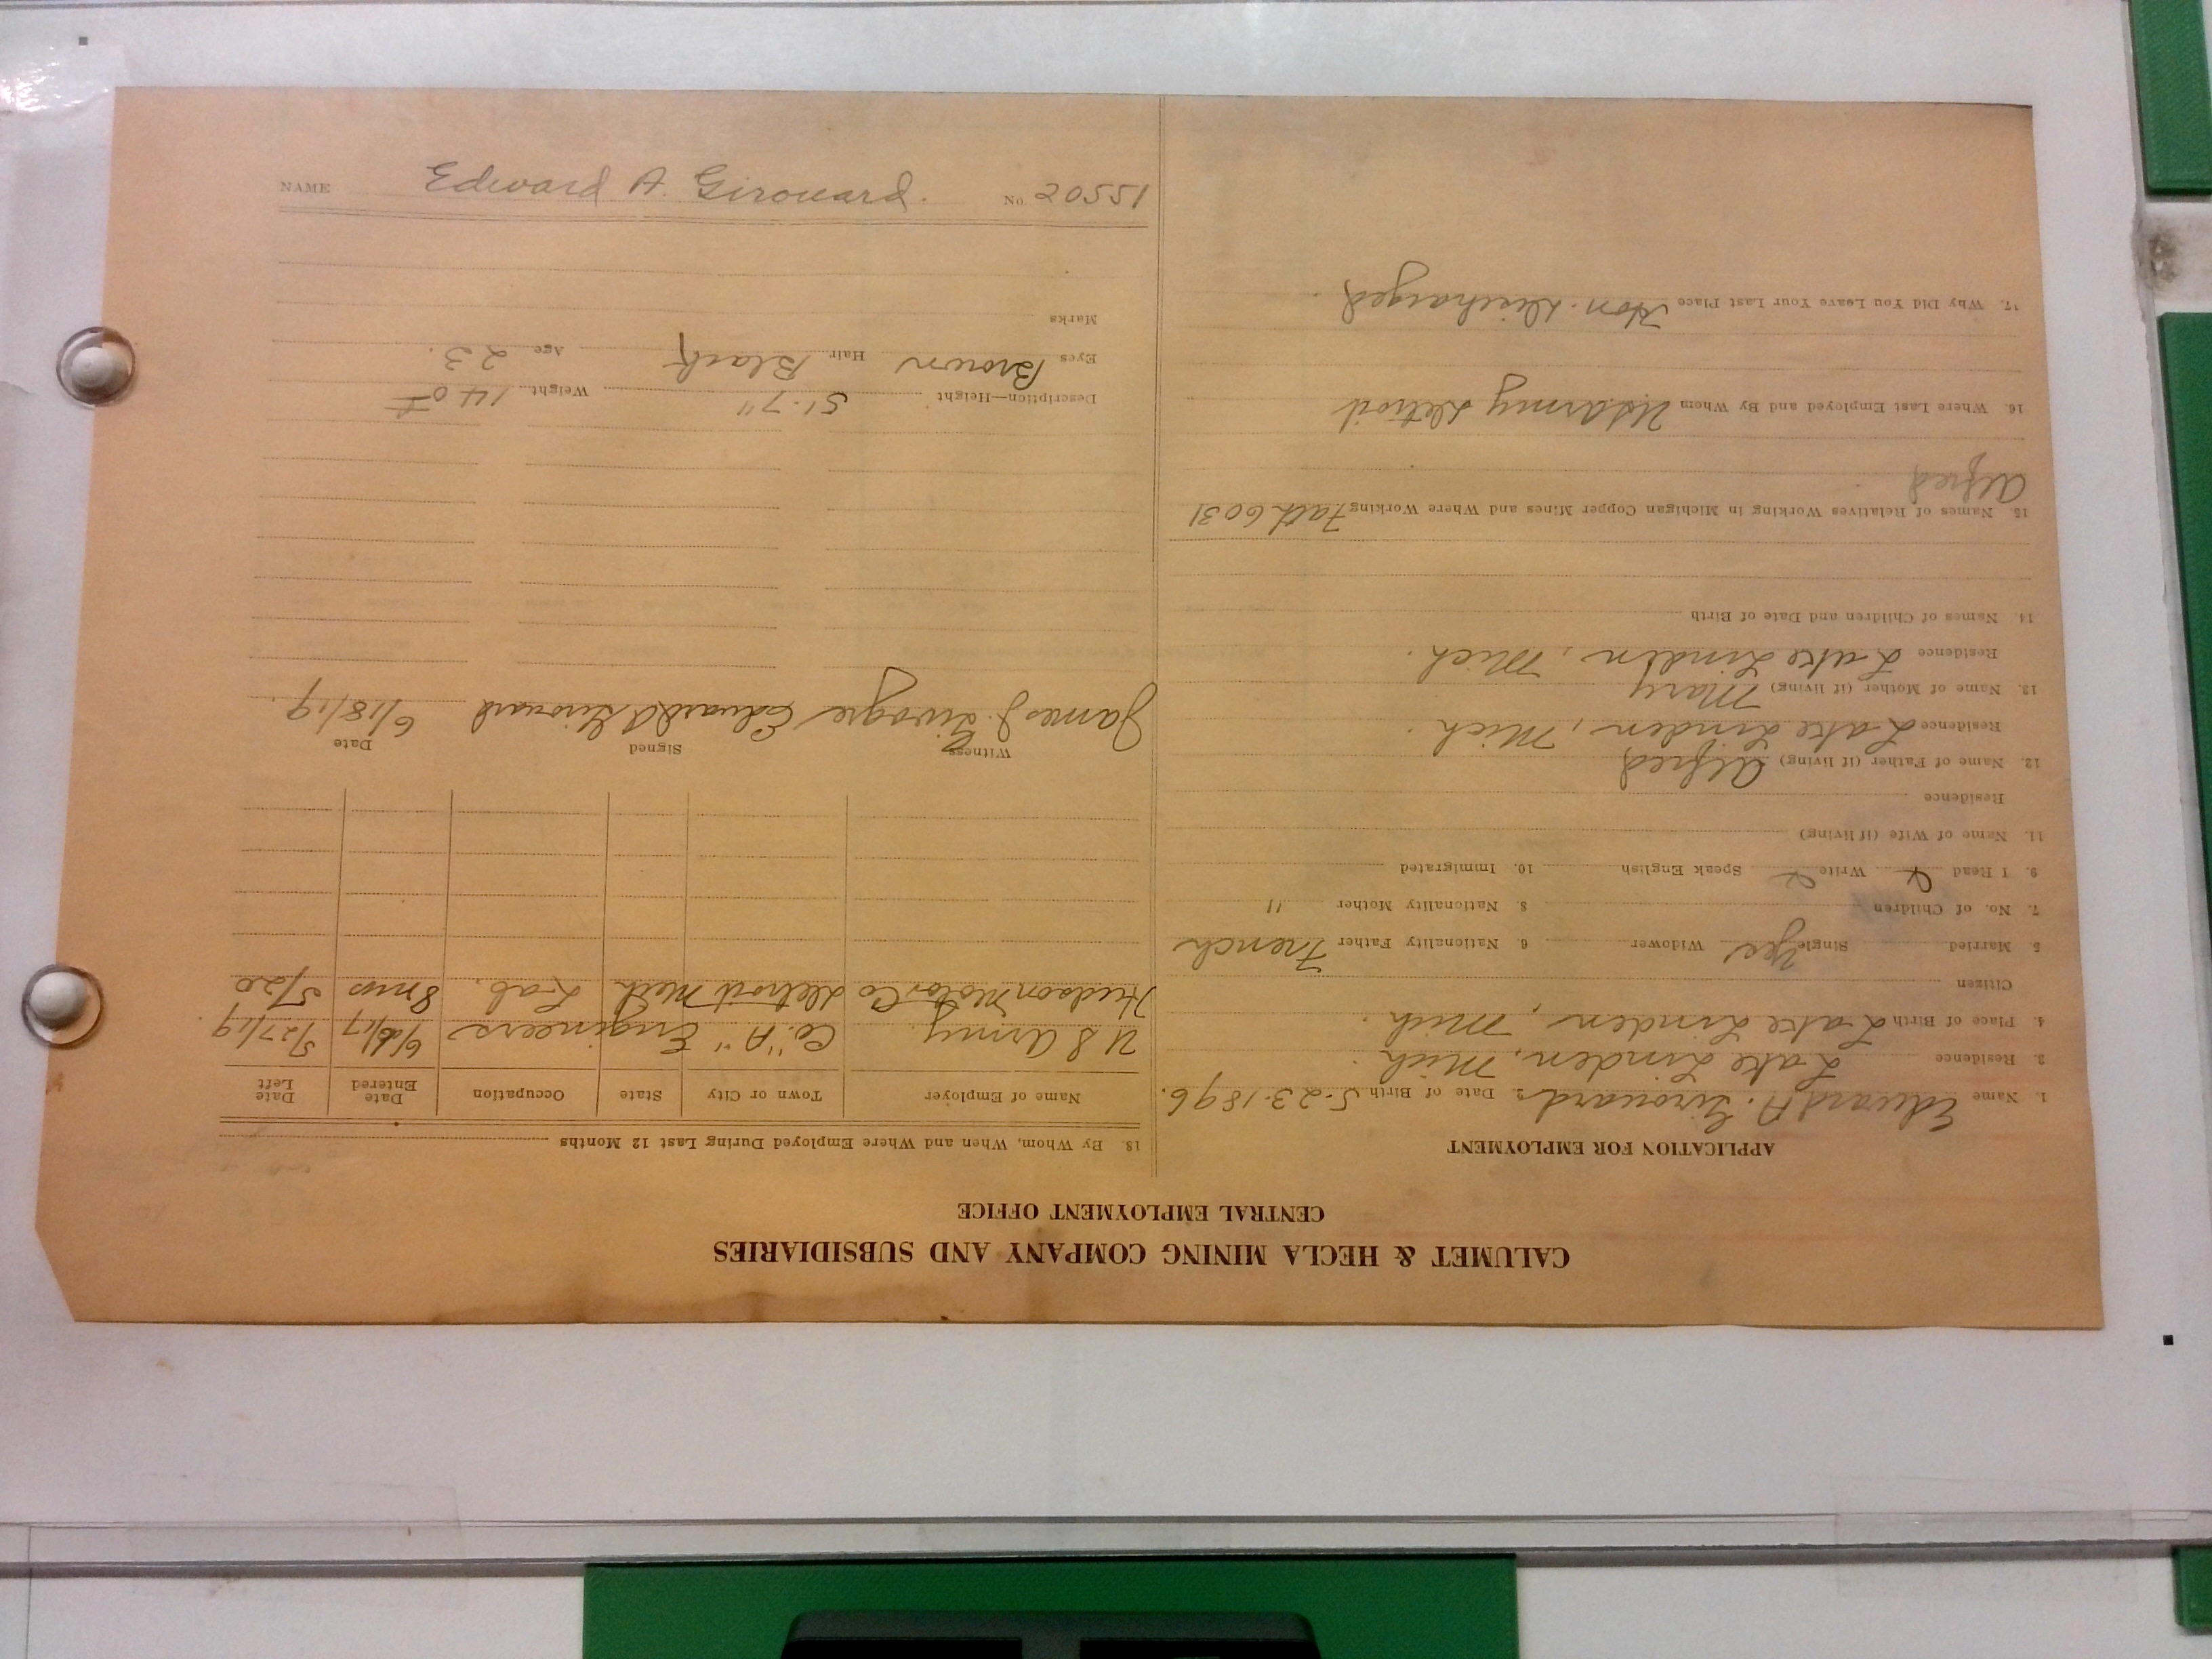 CALUMET & HECLA MINING COMPANY AND SUBSIDIARIES
CENTRAL EMPLOYMENT OFFICE
APPLICATION FOR EMPLOYMENT
1. Name Edward A. Girouard 2. Date of Birth 5-23-1896.
3. Residence Lake Linden, Mich.
4. Place of Birth Lake Linden, Mich.
Citizen
5 Married Single Yes Widower 6. Nationality Father French
7. No. of Children 8. Nationality Mother "
9. I Read Write Speak English 10. Immigrated
11. Name of Wife (if living)
Residence
12. Name of Father (if living) Alfred
Residence Lake Linden, Mich.
13. Name of Mother (if living) Mary
Residence Lake Linden, Mich.
14. Names of Children and Date of Birth
15. Names of Relatives Working in Michigan Copper Mines and Where Working Fath 6031
Alfred
16. Where Last Employed and By Whom US Army Detroit
17. Why Did You Leave Your Last Place Hon. Discharged.
18. By Whom, When and Where Employed During Last 12 Months
Name of Employer Town or City State Occupation Date Entered Date Left
U S Army. Co. "A" Engineers 5/27/19
Hudson Motor Co Detroit Mich Lab. 8 mos 5/20
Witness Signed Date
James J. Edward A Girouard 6/18/19.
Description—Height 5'.7" Weight 140 #
Eyes Brown Hair Black Age 23.
Marks
NAME Edward A. Girouard. No. 20551